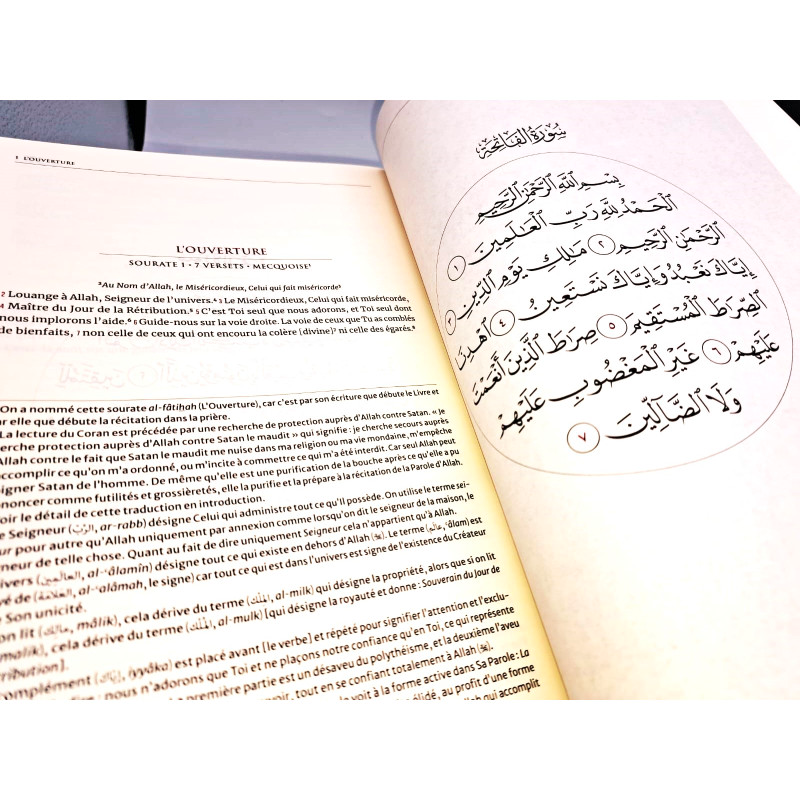 1 L'OUVERTURE
L'OUVERTURE
SOURATE 1 • 7 VERSETS • MECQUOISE¹
³Au Nom d'Allah, le Miséricordieux, Celui qui fait miséricorde³
2 Louange à Allah, Seigneur de l'univers.⁴ 3 Le Miséricordieux, Celui qui fait miséricorde,
4 Maître du Jour de la Rétribution.⁵ 5 C'est Toi seul que nous adorons, et Toi seul dont
nous implorons l'aide.⁶ 6 Guide-nous sur la voie droite. La voie de ceux que Tu as comblés
de bienfaits, 7 non celle de ceux qui ont encouru la colère (divine)⁷ ni celle des égarés.⁸
On a nommé cette sourate al-fâtiḥah (L'Ouverture), car c'est par son écriture que débute le Livre et
par elle que débute la récitation dans la prière.
La lecture du Coran est précédée par une recherche de protection auprès d'Allah contre Satan. « Je
cherche protection auprès d'Allah contre Satan le maudit » qui signifie : je cherche secours auprès
d'Allah contre le fait que Satan le maudit me nuise dans ma religion ou ma vie mondaine, m'empêche
accomplir ce qu'on m'a ordonné, ou m'incite à commettre ce qui m'a été interdit. Car seul Allah peut
igner Satan de l'homme. De même qu'elle est une purification de la bouche après ce qu'elle a pu
noncer comme futilités et grossièretés, elle la purifie et la prépare à la récitation de la Parole d'Allah.
oir le détail de cette traduction en introduction.
e Seigneur (الرَّبّ, ar-rabb) désigne Celui qui administre tout ce qu'Il possède. On utilise le terme sei-
ur pour autre qu'Allah uniquement par annexion comme lorsqu'on dit le seigneur de la maison, le
neur de telle chose. Quant au fait de dire uniquement Seigneur cela n'appartient qu'à Allah.
ivers (العالمين, al-'âlamîn) désigne tout ce qui existe en dehors d'Allah (ﷻ). Le terme (عالم, 'âlam) est
vé de (العلامة, al-'alâmah, le signe) car tout ce qui est dans l'univers est signe de l'existence du Créateur
Son unicité.
on lit (مالك, mâlik), cela dérive du terme (المِلْك, al-milk) qui désigne la propriété, alors que si on lit
malik), cela dérive du terme (المُلْك, al-mulk) [qui désigne la royauté et donne : Souverain du Jour de
tribution].
omplément (إيّاك, iyyâka) est placé avant [le verbe] et répété pour signifier l'attention et l'exclu-
: nous n'adorons que Toi et ne plaçons notre confiance qu'en Toi, ce qui représente
première partie est un désaveu du polythéisme, et la deuxième l'aveu
voir, tout en se confiant totalement à Allah (ﷻ).
voit à la forme active dans Sa Parole : La
élidé, au profit d'une forme
Allah qui accomplit
سُورَةُ الفَاتِحَةِ
بِسْمِ ٱللَّهِ ٱلرَّحْمَٰنِ ٱلرَّحِيمِ
ٱلْحَمْدُ لِلَّهِ رَبِّ ٱلْعَٰلَمِينَ ١
ٱلرَّحْمَٰنِ ٱلرَّحِيمِ ٢ مَٰلِكِ يَوْمِ ٱلدِّينِ ٣
إِيَّاكَ نَعْبُدُ وَإِيَّاكَ نَسْتَعِينُ ٤ ٱهْدِنَا
ٱلصِّرَٰطَ ٱلْمُسْتَقِيمَ ٥ صِرَٰطَ ٱلَّذِينَ أَنْعَمْتَ
عَلَيْهِمْ ٦ غَيْرِ ٱلْمَغْضُوبِ عَلَيْهِمْ
وَلَا ٱلضَّآلِّينَ ٧